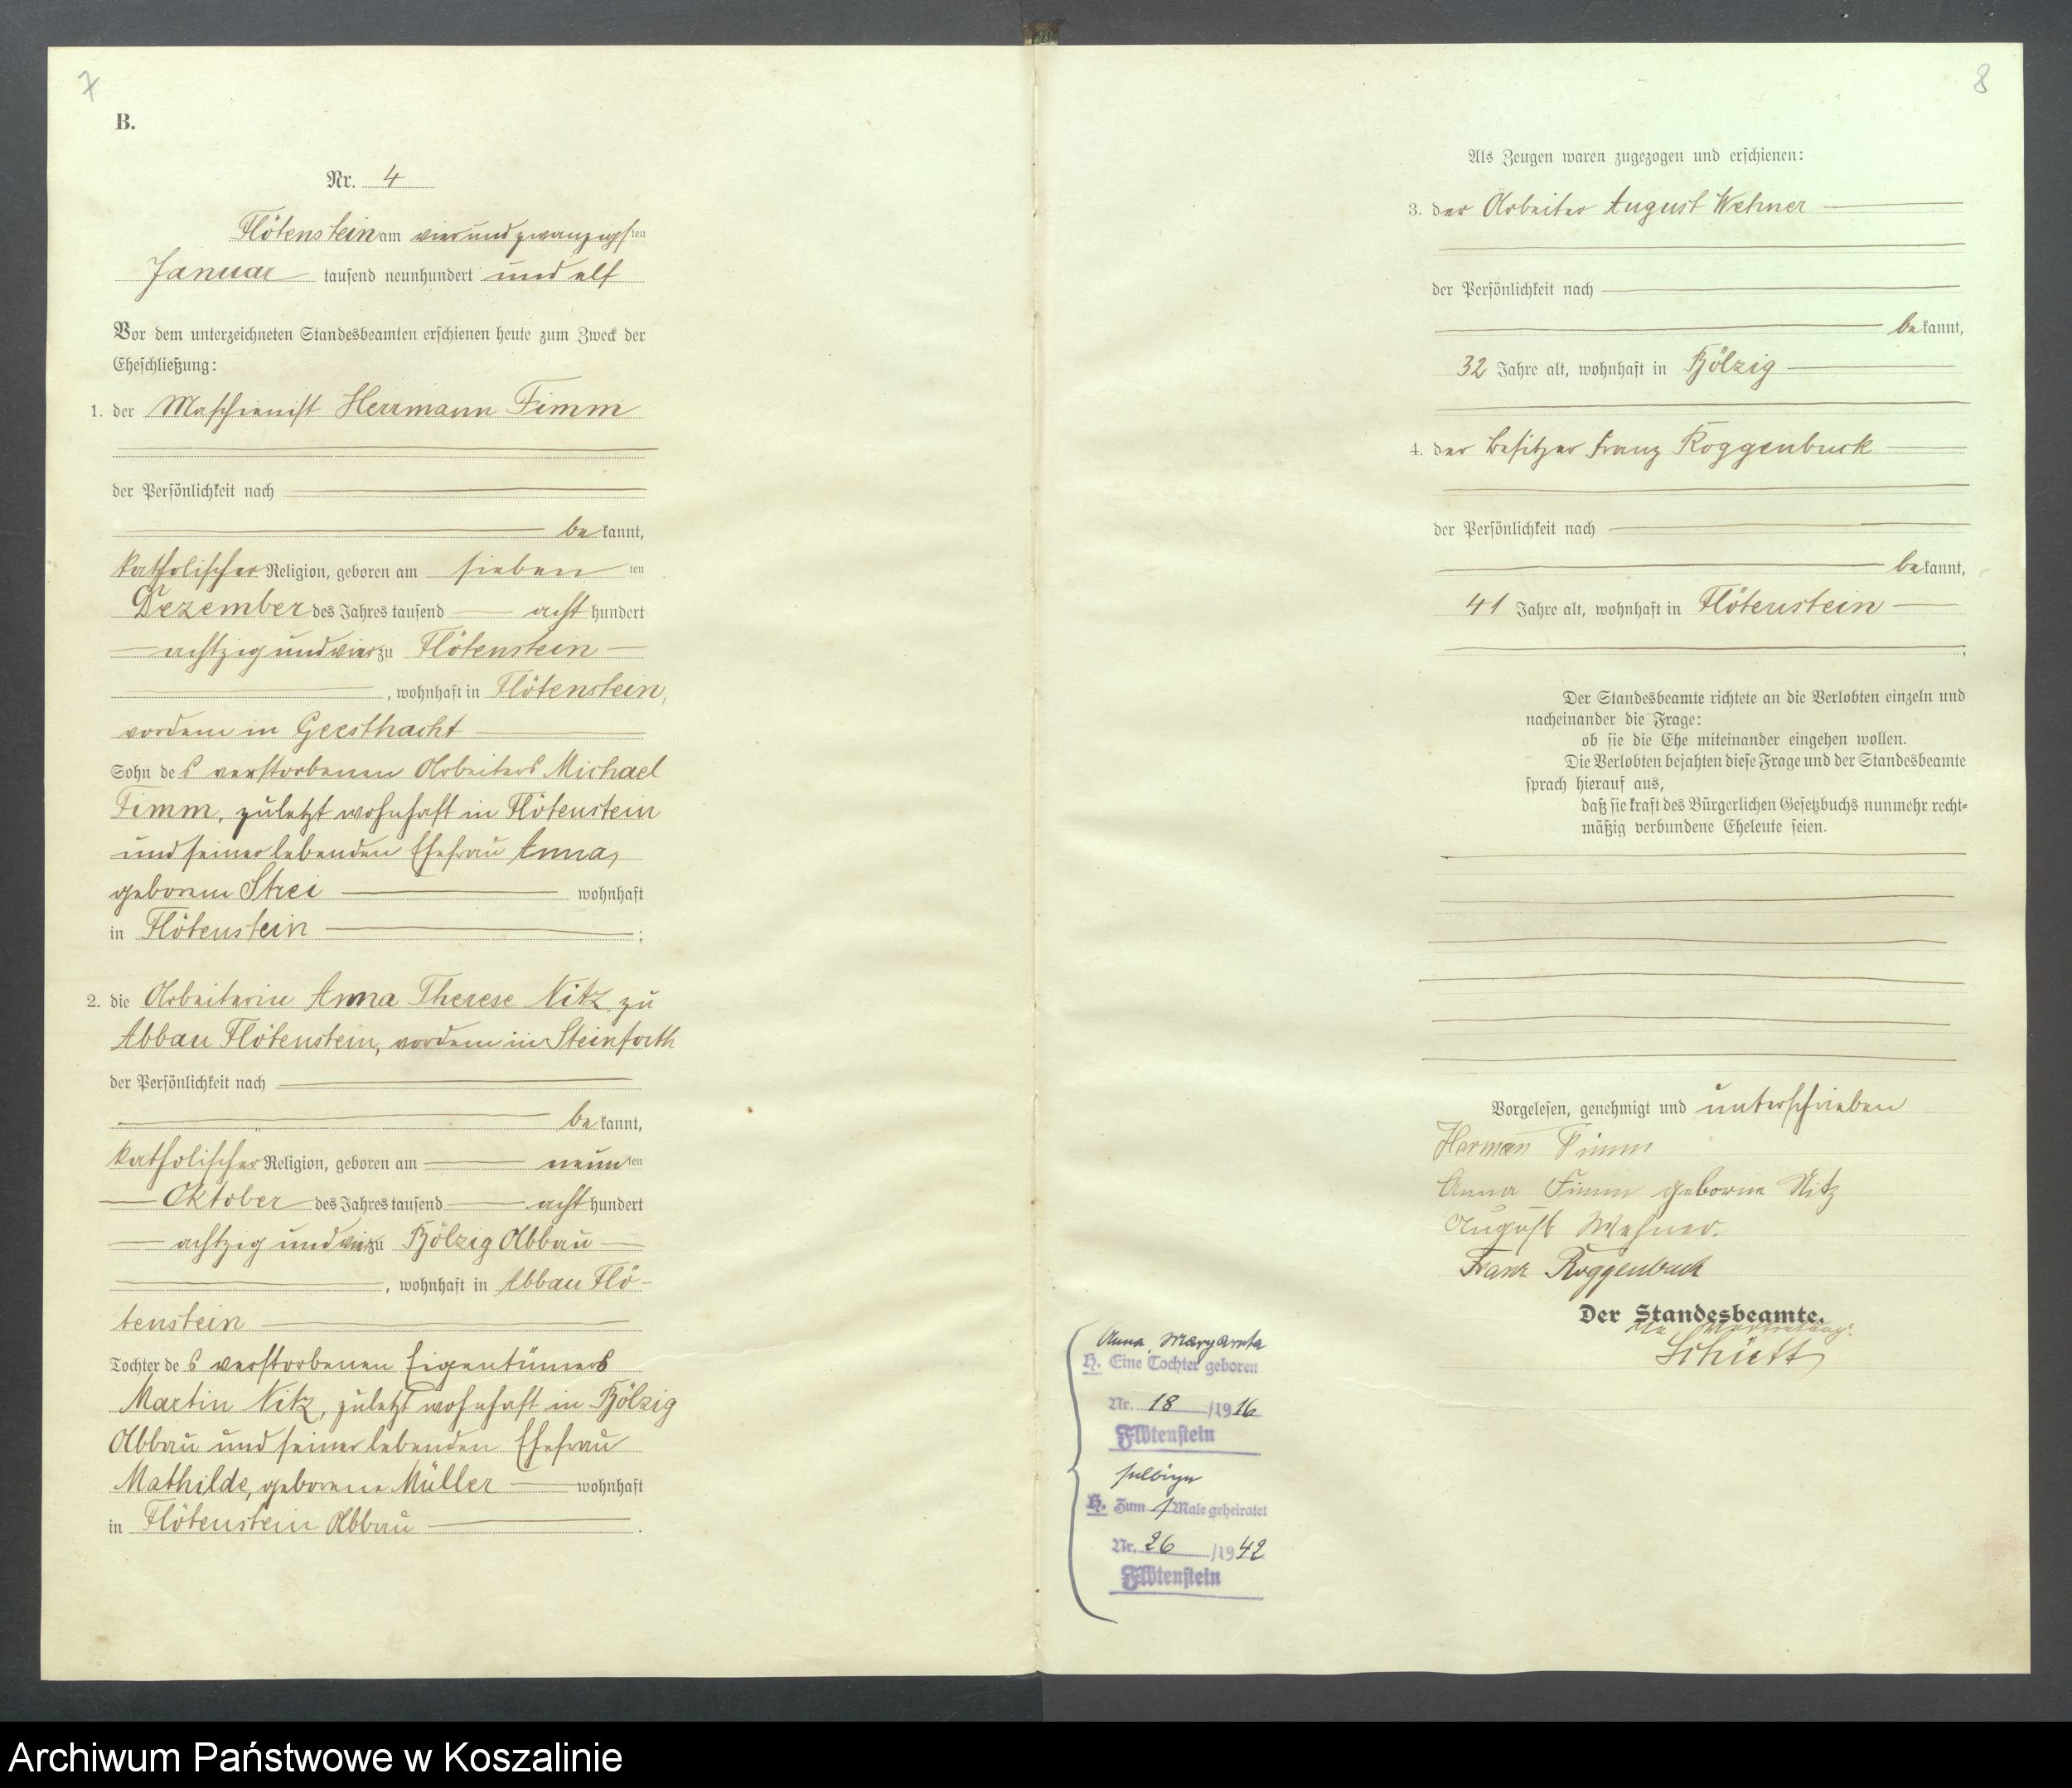 7
B.
Nr. 4
Flötenstein am vierundzwanzigsten
Januar tausend neunhundert und elf
Vor dem unterzeichneten Standesbeamten erschienen heute zum Zweck der
Eheschließung:
1. der Maschienist Herrmann Fimm
der Persönlichkeit nach
bekannt,
katholischer Religion, geboren am siebenten
Dezember des Jahres tausend acht hundert
achtzig und vier zu Flötenstein
, wohnhaft in Flötenstein,
vordem in Geesthacht
Sohn des verstorbenen Arbeiters Michael
Fimm, zuletzt wohnhaft in Flötenstein
und seiner lebenden Ehefrau Anna,
geborene Strei wohnhaft
in Flötenstein ;
2. die Arbeiterin Anna Therese Nitz zu
Abbau Flötenstein, vordem in Steinforth
der Persönlichkeit nach
bekannt,
katholischer Religion, geboren am neunten
Oktober des Jahres tausend acht hundert
achtzig und vier zu Pölzig Abbau
, wohnhaft in Abbau Flö-
tenstein
Tochter des verstorbenen Eigentümers
Martin Nitz, zuletzt wohnhaft in Pölzig
Abbau und seiner lebenden Ehefrau
Mathilde, geborene Müller wohnhaft
in Flötenstein Abbau .
8
Als Zeugen waren zugezogen und erschienen:
3. der Arbeiter August Wehner
der Persönlichkeit nach
bekannt,
32 Jahre alt, wohnhaft in Pölzig
4. der Besitzer Franz Roggenbuck
der Persönlichkeit nach
bekannt,
41 Jahre alt, wohnhaft in Flötenstein
;
Der Standesbeamte richtete an die Verlobten einzeln und
nacheinander die Frage:
ob sie die Ehe miteinander eingehen wollen.
Die Verlobten bejahten diese Frage und der Standesbeamte
sprach hierauf aus,
daß sie kraft des Bürgerlichen Gesetzbuchs nunmehr recht-
mäßig verbundene Eheleute seien.
Vorgelesen, genehmigt und unterschrieben
Herman Fimm
Anna Fimm geborne Nitz
August Wehner.
Franz Roggenbuck
Der Standesbeamte.
In Vertretung.
Schütt
Anna Margareta
H. Eine Tochter geboren
Nr. 18 /1916
Flötenstein
selbige
H. Zum 1 Male geheiratet
Nr. 26 /1942
Flötenstein
Archiwum Państwowe w Koszalinie